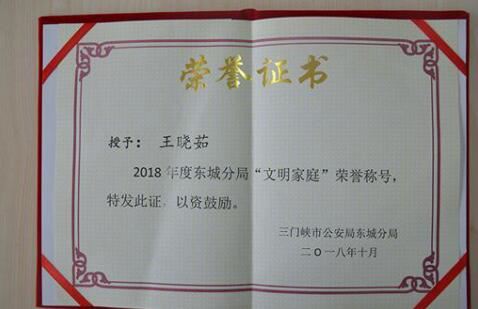 荣誉证书
授予：王晓茹
2018年度东城分局“文明家庭”荣誉称号，
特发此证，以资鼓励。
三门峡市公安局东城分局
二〇一八年十月